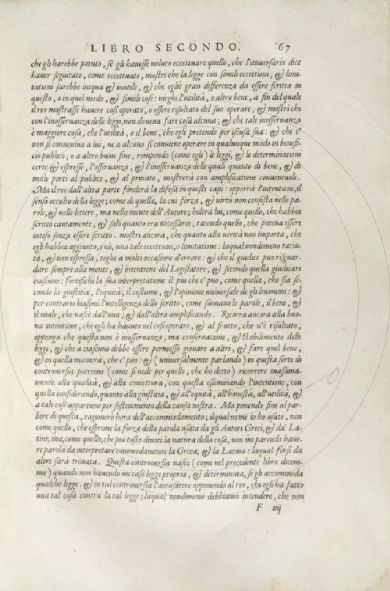 LIBRO SECONDO. 67
che gli harebbe potuto, se gli hauesse voluto eccettuare quello, che l'auuersario dice
hauer seguitato, come eccettuato, mostri che la legge con simili eccettioni, & limi-
tationi sarebbe iniqua & inutile, & che egli è gran differenza da essere scritta in
questo, o in quel modo, & simili cose: niun l'utilità, o altro bene, a fin del quale
il reo mostrasse hauere così operato, o essere risultato del suo operare, & mostri che
con l'inosseruanza della legge, non doueua fare cosa alcuna; & che tale inosseruanza
è maggiore cosa, che l'utilità, o il bene, che egli pretende per iscusa sua: & che e'
non si conueniua a lui, ne a alcuno si conuiene operare in qualunque modo in benefi-
cio publico, o a altro buon fine, rompendo (come egli) le leggi, & le determinationi
certe & espresse, l'osseruanza, & l'inosseruanza delle quali quanto di bene, & di
male porti al publico, & al priuato, mostrerà con amplificatione conueneuole.
Ma il reo dall'altra parte fonderà la difesa in questi capi: opporrà l'intentione, il
senso occulto della legge; come di quella, la cui forza, & uirtù non consista nelle pa-
role, & nelle lettere, ma nella mente dell'Autore; loderà lui, come quello, che habbia
scritto cautamente, & solo quanto era necessario, tacendo quello, che poteua essere
inteso senza essere scritto. mostri ancora, che quanto alla uerità non importa, che
egli habbia aggiunto, o nò, una tale eccettione, o limitatione: laqual nondimeno taciu-
ta, & non espressa, toglie a molti occasione d'errare: & che il giudice può risguar-
dare sempre alla mente, & intentione del Legislatore, & secondo quella giudicare
ciascuno: fortifichi la sua interpretatione il più che e' può, come quella, che sia se-
condo la giustitia, l'equità, il costume, & l'opinione uniuersale de gli huomini: &
per contrario biasimi l'intelligenza dello scritto, come suonano le parole, il bene, &
il male, che nasce dall'una, & dall'altra amplificando. Ricorra ancora alla buo-
na intentione, che egli ha hauuto nel così operare, & al frutto, che n'è risultato,
opponga che questa non è inosseruanza, ma conseruatione, & stabilimento delle
legge, & che a ciascuno debbe essere permesso giouare a altri, & fare quel bene,
& in quella maniera, che e' può: & (uniuersalmente parlando) in questa sorte di
controuersia potremo (come si uede per quello, che ho detto) ricorrere massima-
mente alla qualità, & alla coniettura, con questa esaminando l'intentione, con
quella considerando, quanto alla giustitia, & all'equità, all'honestà, all'utilità, &
a tal cose appartiene per sostenimento della causa nostra. Ma ponendo fine al par-
lare di questa, ragionerò hora dell'accommodamento; il qual nome io ho usato, non
come quello, che esprime la forza della parola usata da gli Autori Greci, & da' La-
tini; ma, come quello, che più tosto dimostri la natura della cosa, non mi parendo hauere
parola da interpretare commodamente la Greca, & la Latina: laqual forse da
altri sarà trouata. Questa controuersia nasce (come nel precedente libro dicem-
mo) quando non hauendo un caso legge propria, & determinata, se gli accommoda
qualche legge. & in tal controuersia l'accusatore opponendo al reo, che egli ha fatto
una tal cosa contra la tal legge; laqual nondimeno debbiamo intendere, che non
F iij